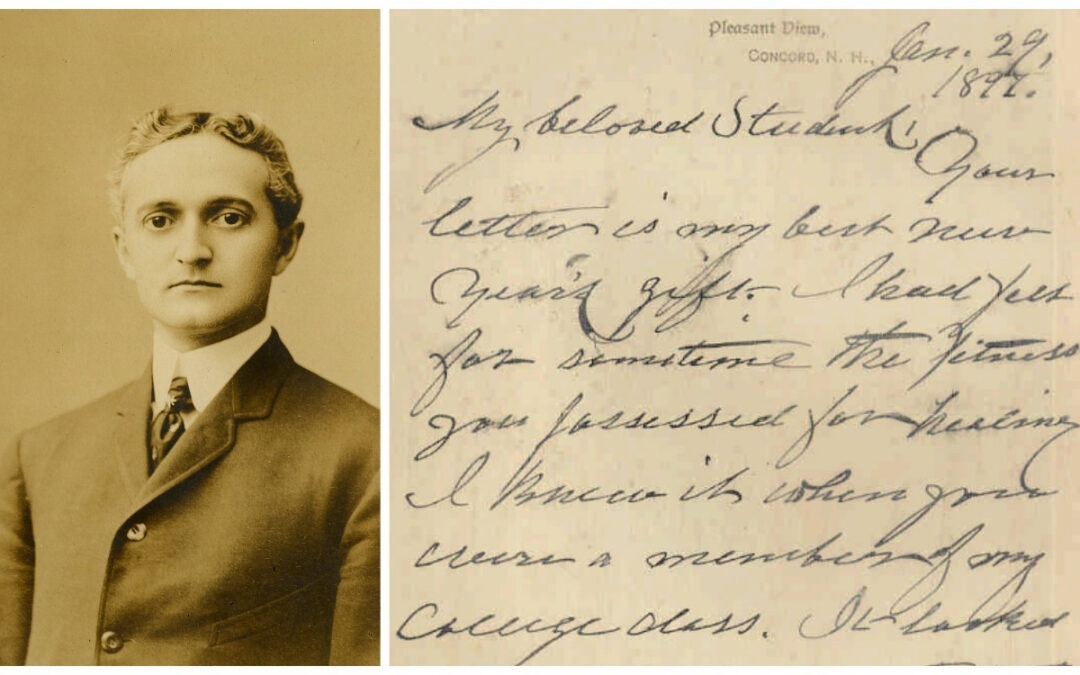 Pleasant View,
CONCORD, N. H., Jan. 29,
1897.
My beloved Student,
Your
letter is my best new
Year's gift. I had felt
for sometime the fitness
you possessed for healing
I knew it when you
were a member of my
College class. It looked